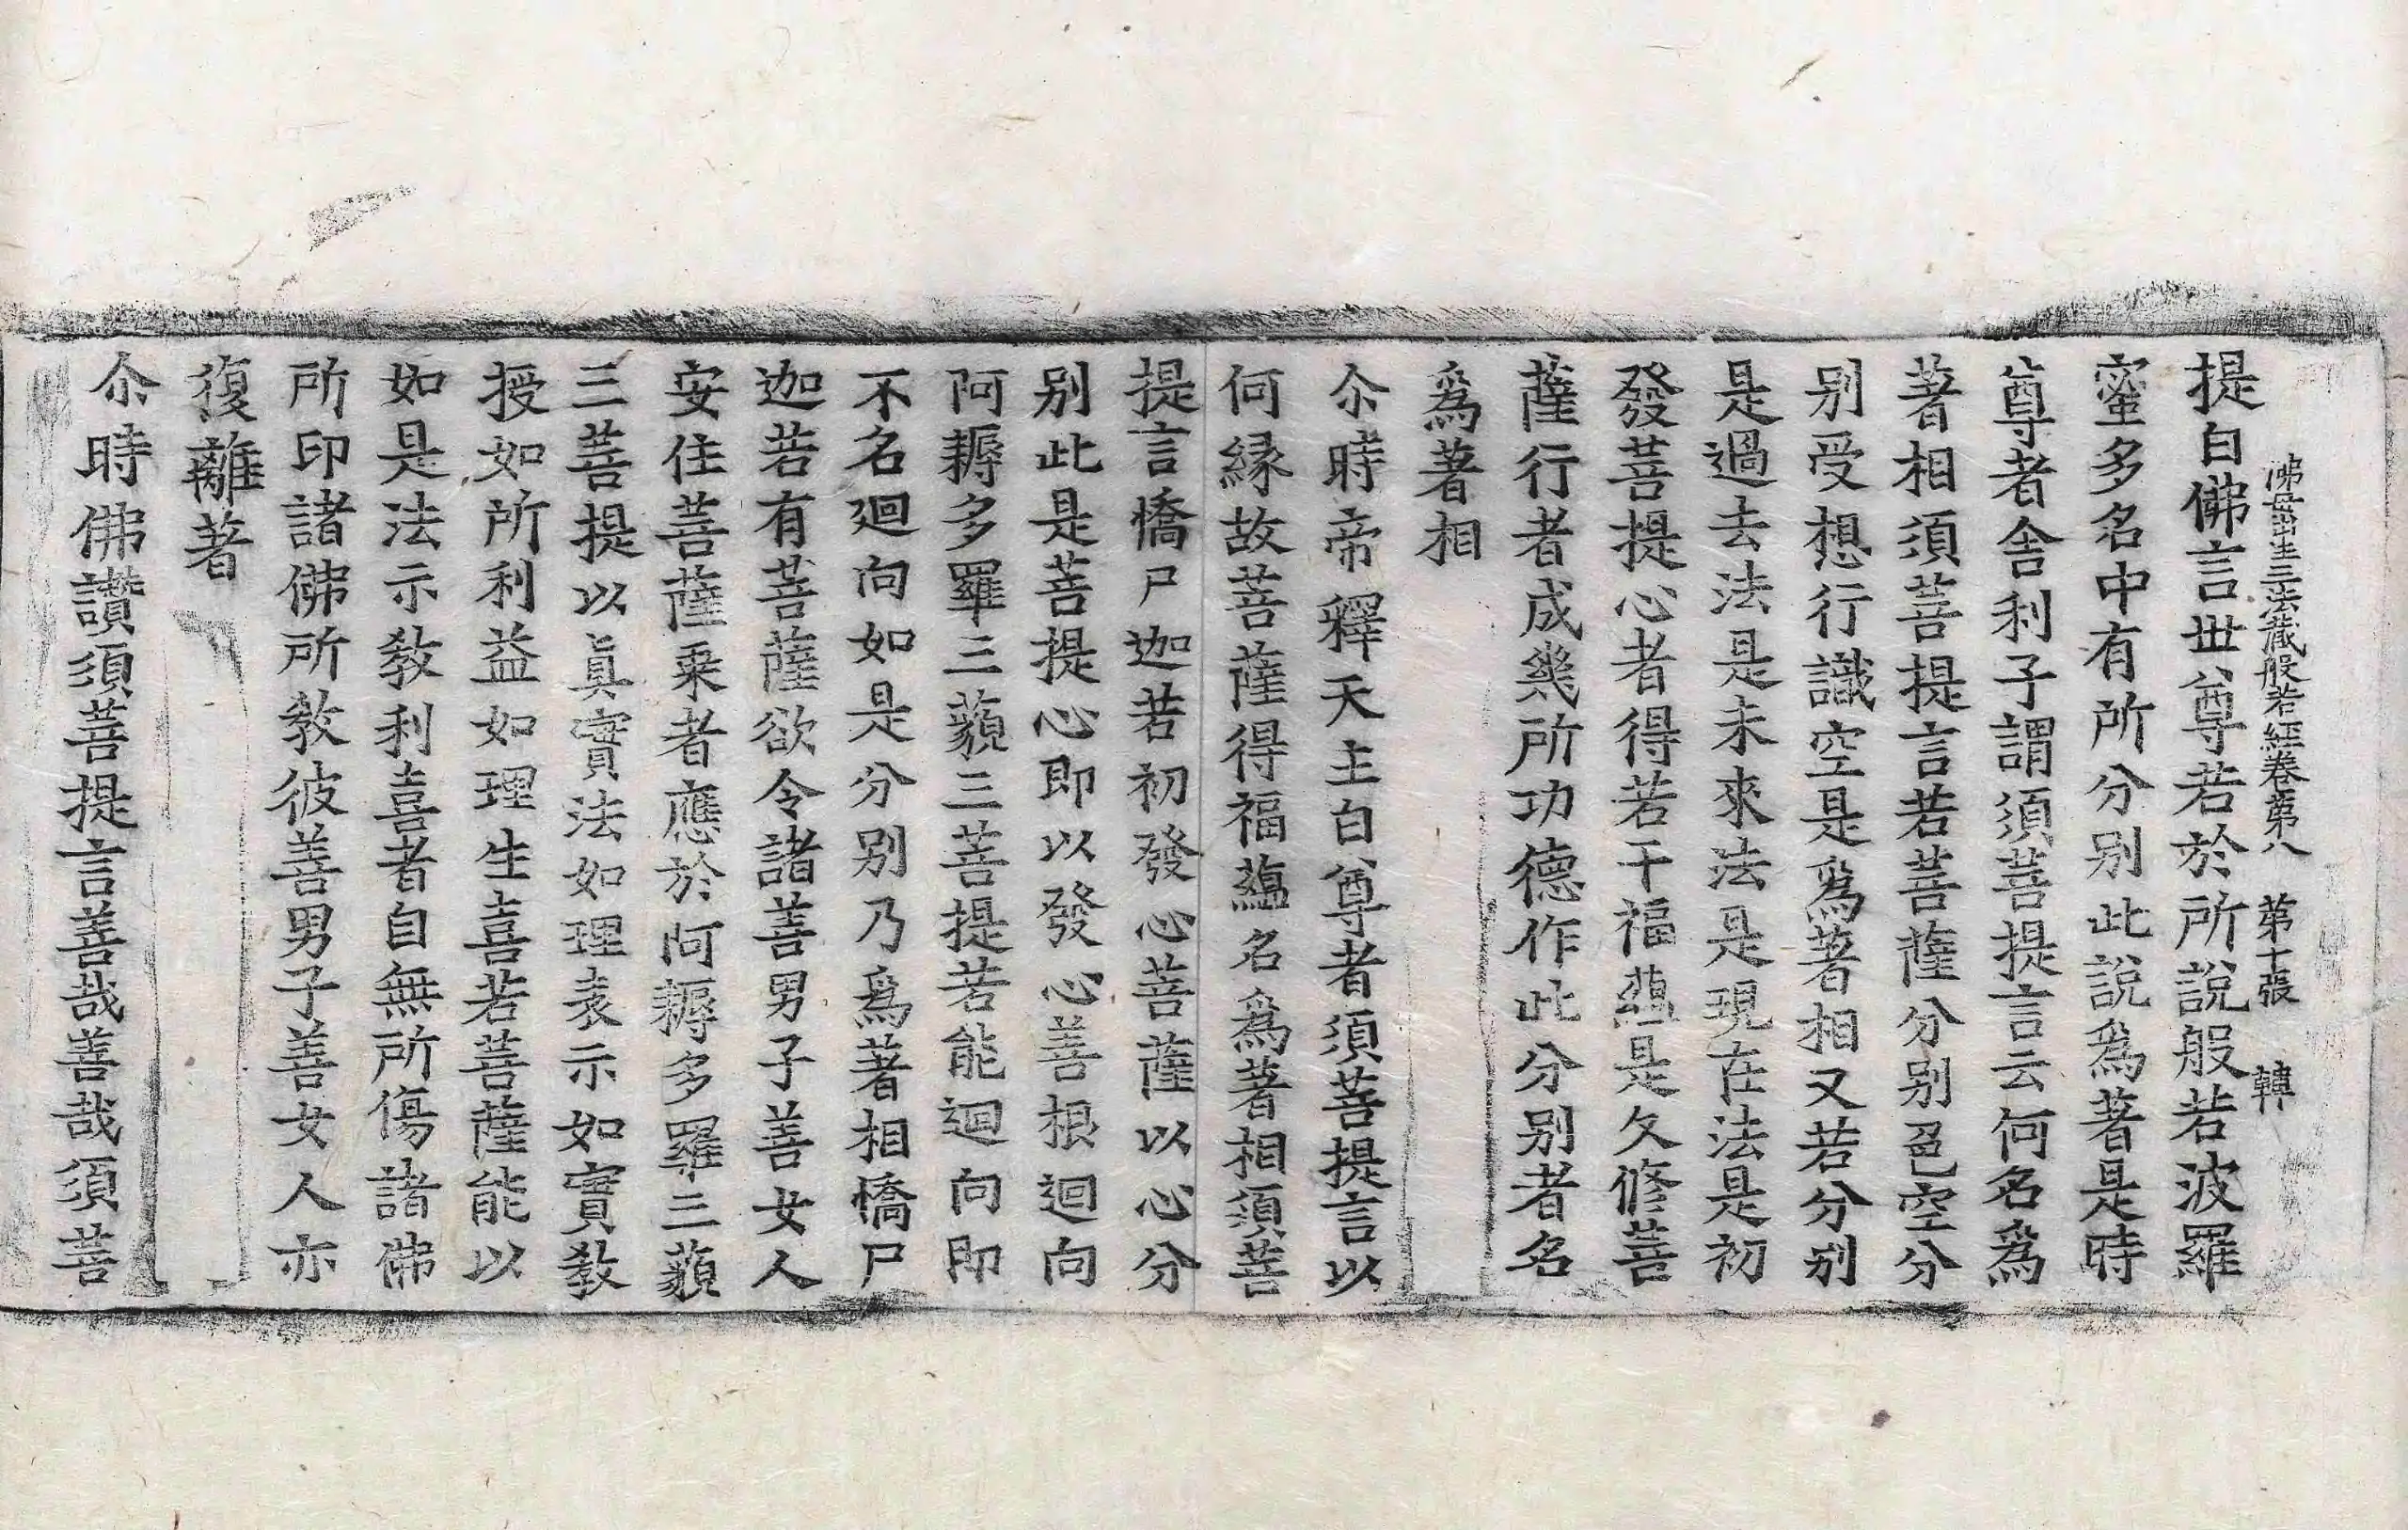 佛母出生三法藏般若經卷第八　第十張　韓
提白佛言世尊若於所說般若波羅
蜜多名中有所分別此說爲著是時
尊者舍利子謂須菩提言云何名爲
著相須菩提言若菩薩分別色空分
別受想行識空是爲著相又若分別
是過去法是未來法是現在法是初
發菩提心者得若干福蘊是久修菩
薩行者成幾所功德作此分別者名
爲著相
尒時帝釋天主白尊者須菩提言以
何緣故菩薩得福蘊名爲著相須菩
提言憍尸迦若初發心菩薩以心分
別此是菩提心即以發心善根迴向
阿耨多羅三藐三菩提若能迴向即
不名迴向如是分別乃爲著相憍尸
迦若有菩薩欲令諸善男子善女人
安住菩薩乗者應於阿耨多羅三藐
三菩提以眞實法如理表示如實教
授如所利益如理生喜若菩薩能以
如是法示教利喜者自無所傷諸佛
所印諸佛所教彼善男子善女人亦
復離著
尒時佛讚須菩提言善哉善哉須菩